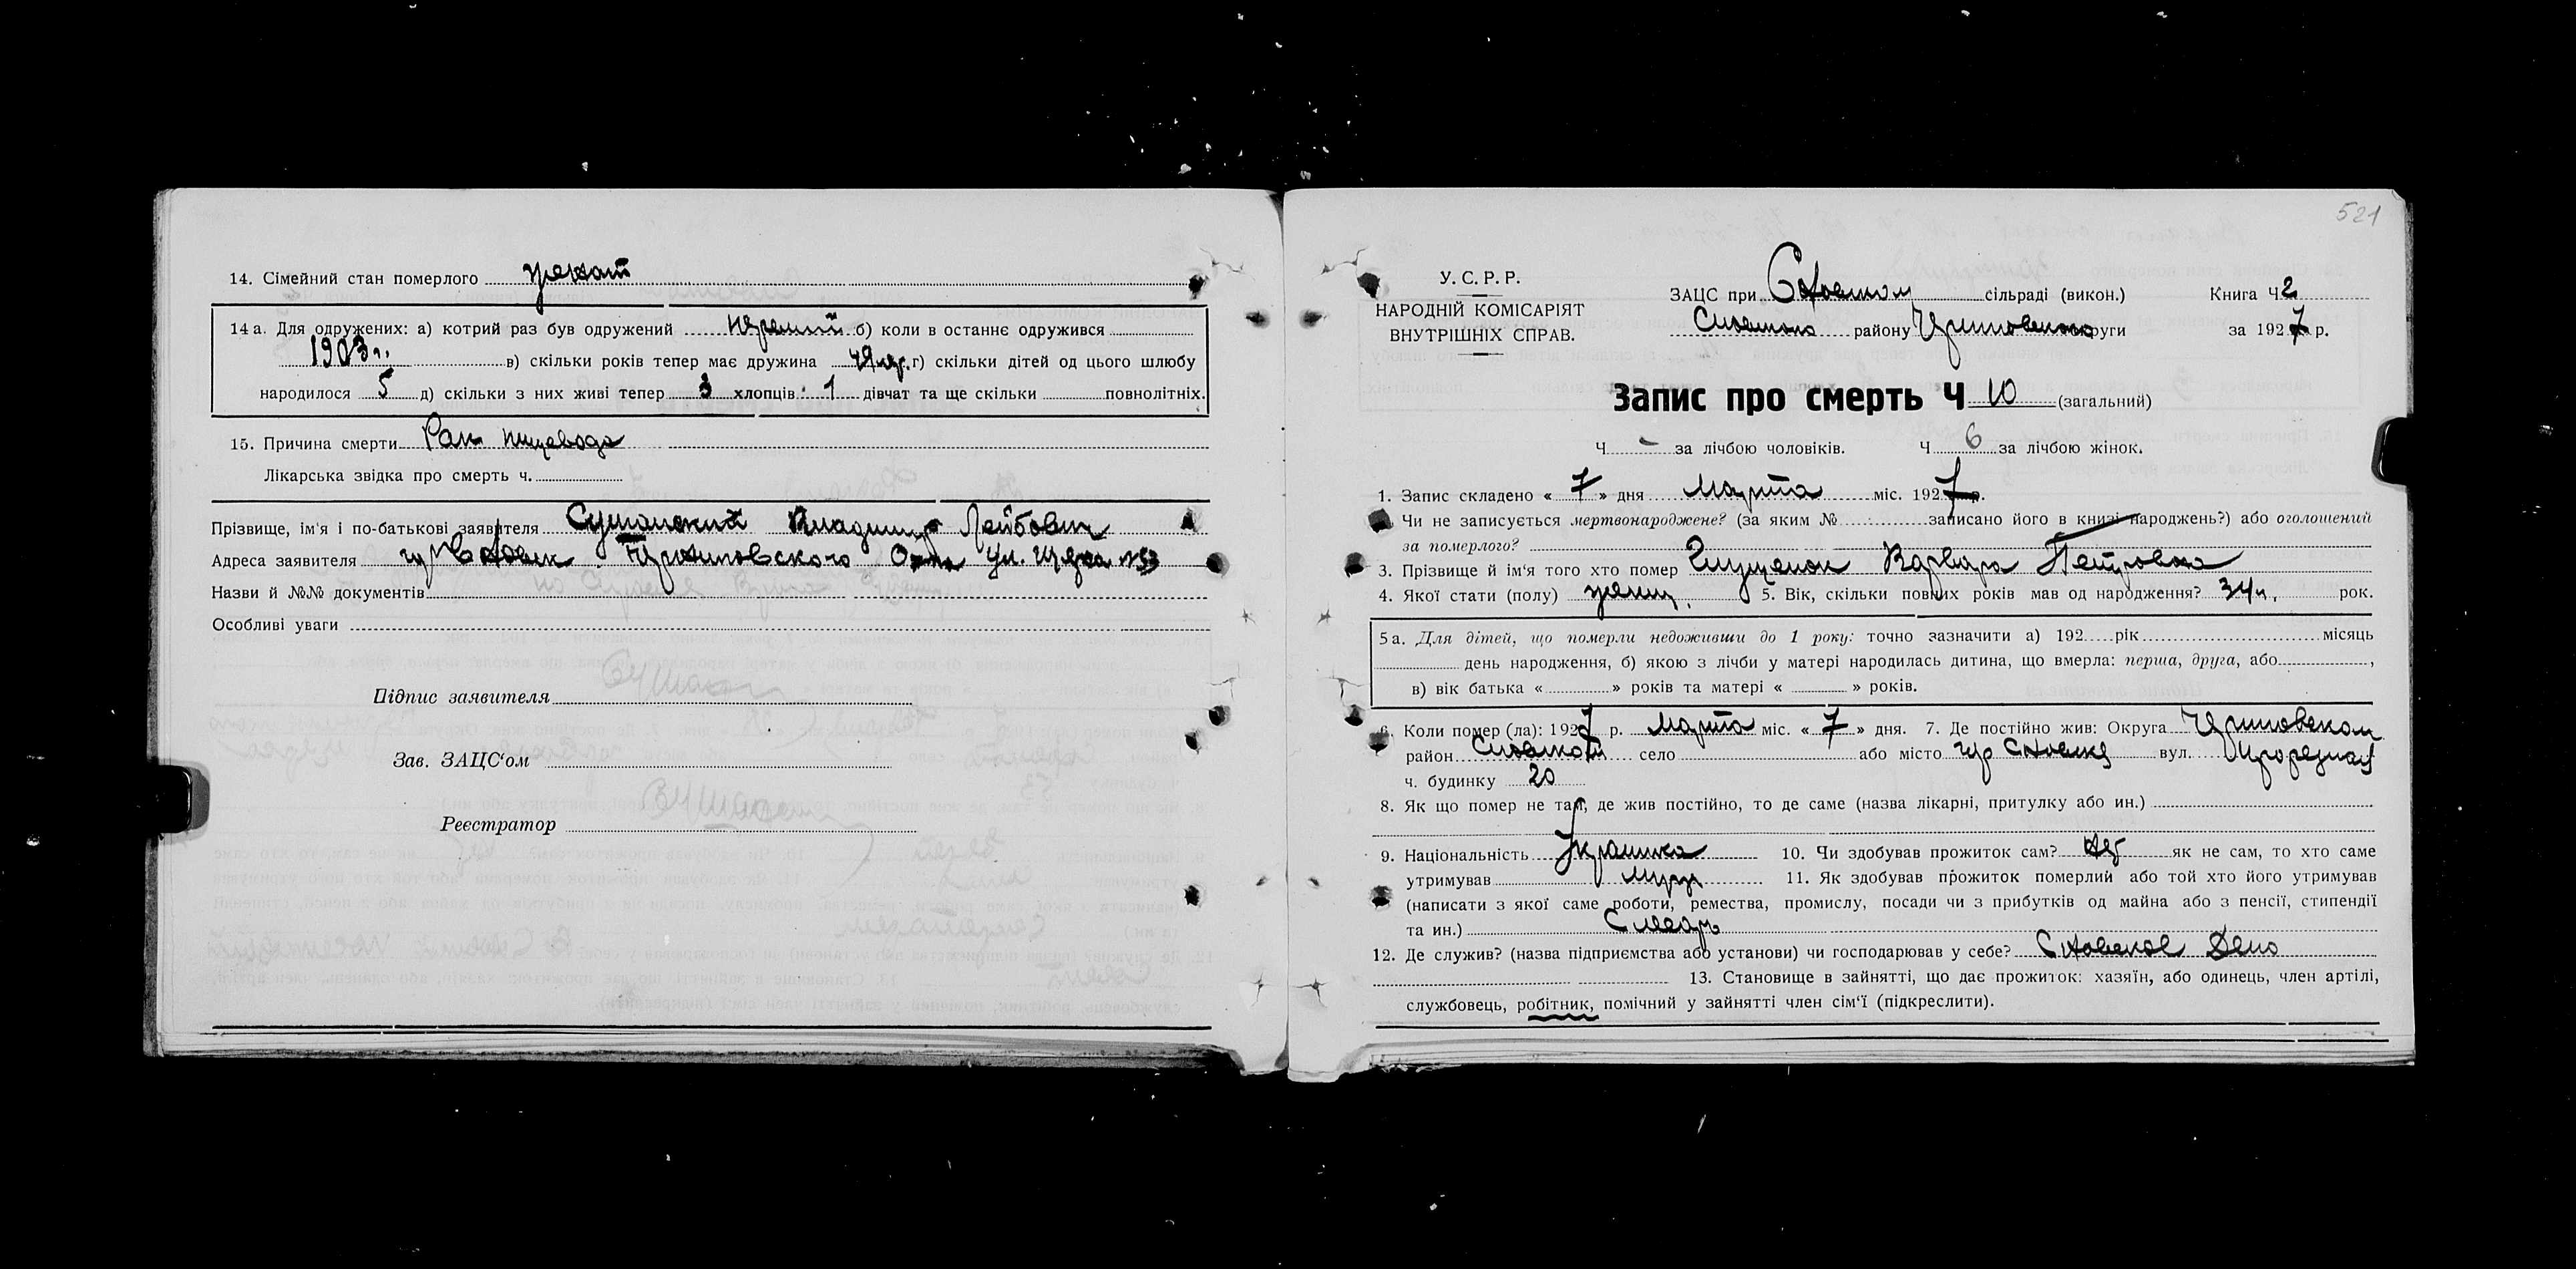 14. Сімейний стан померлого женат
14 а. Для одружених: а) котрий раз був одружений первый б) коли в останнє одружився
1903 г. в) скільки років тепер має дружина 49 г) скільки дітей од цього шлюбу
народилося 5 д) скільки з них живі тепер 3 хлопців 1 дівчат та ще скільки повнолітніх.
15. Причина смерти Рак пищевода
Лікарська звідка про смерть ч.
Прізвище, ім'я і по-батькові заявителя Владимир Лейбович
Адреса заявителя гор Сновск Черниговского ул. №53
Назви й №№ документів
Особливі уваги
Підпис заявителя
Зав. ЗАЦС'ом
Реєстратор
521
У. С. Р. Р.
НАРОДНІЙ КОМІСАРІЯТ
ВНУТРІШНІХ СПРАВ.
ЗАЦС при Сновском сільраді (викон.) Книга Ч 2
Сновского району Черниговского округи за 1927 р.
Запис про смерть Ч 10 (загальний)
Ч - за лічбою чоловіків. Ч 6 за лічбою жінок.
1. Запис складено « 7 » дня Марта міс. 1927 р.
Чи не записується мертвонароджене? (за яким № записано його в книзі народжень?) або оголошений
за померлого?
3. Прізвище й ім'я того хто помер Варвара Петровна
4. Якої статі (полу) женщ. 5. Вік, скільки повних років мав од народження? 34 г. рок.
5 а. Для дітей, що померли недоживши до 1 року: точно зазначити а) 192 рік місяць
день народження, б) якою з лічби у матері народилась дитина, що вмерла: перша, друга, або ,
в) вік батька « » років та матері « » років.
6. Коли помер (ла): 1927 р. Марта міс. « 7 » дня. 7. Де постійно жив: Округа Черниговском
район Сновском село або місто гор Сновске вул. Прорезная
ч. будинку 20
8. Як що помер не там, де жив постійно, то де саме (назва лікарні, притулку або ин.)
9. Національність Украинка 10. Чи здобував прожиток сам? нет як не сам, то хто саме
утримував муж 11. Як здобував прожиток померлий або той хто його утримував
(написати з якої саме роботи, ремества, промислу, посади чи з прибутків од майна або з пенсії, стипендії
та ин.) Слесарь
12. Де служив? (назва підприємства або установи) чи господарював у себе? Сновское Депо
13. Становище в зайнятті, що дає прожиток: хазяїн, або одинець, член артілі,
службовець, робітник, помічний у зайнятті член сім'ї (підкреслити).